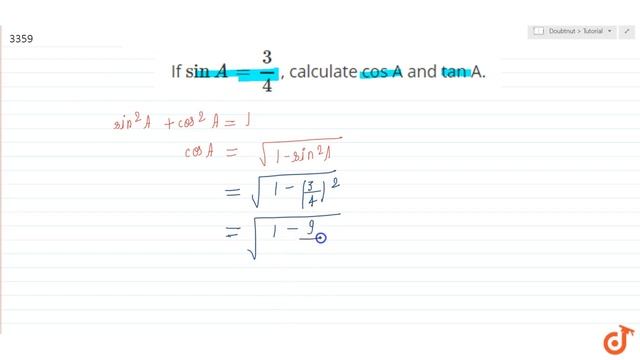 Doubtnut > Tutorial
3359
If sin A = 3/4, calculate cos A and tan A.
sin²A + cos²A = 1
cosA = √(1-sin²A)
= √(1 - (3/4)²)
= √(1 - 9